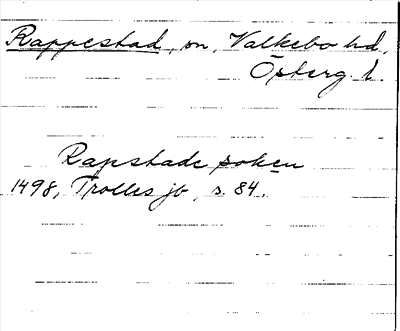 Rappestad, sn, Valkebo hd,
Österg. l.
Rapstade soken
1498, Trolles jb, s. 84.